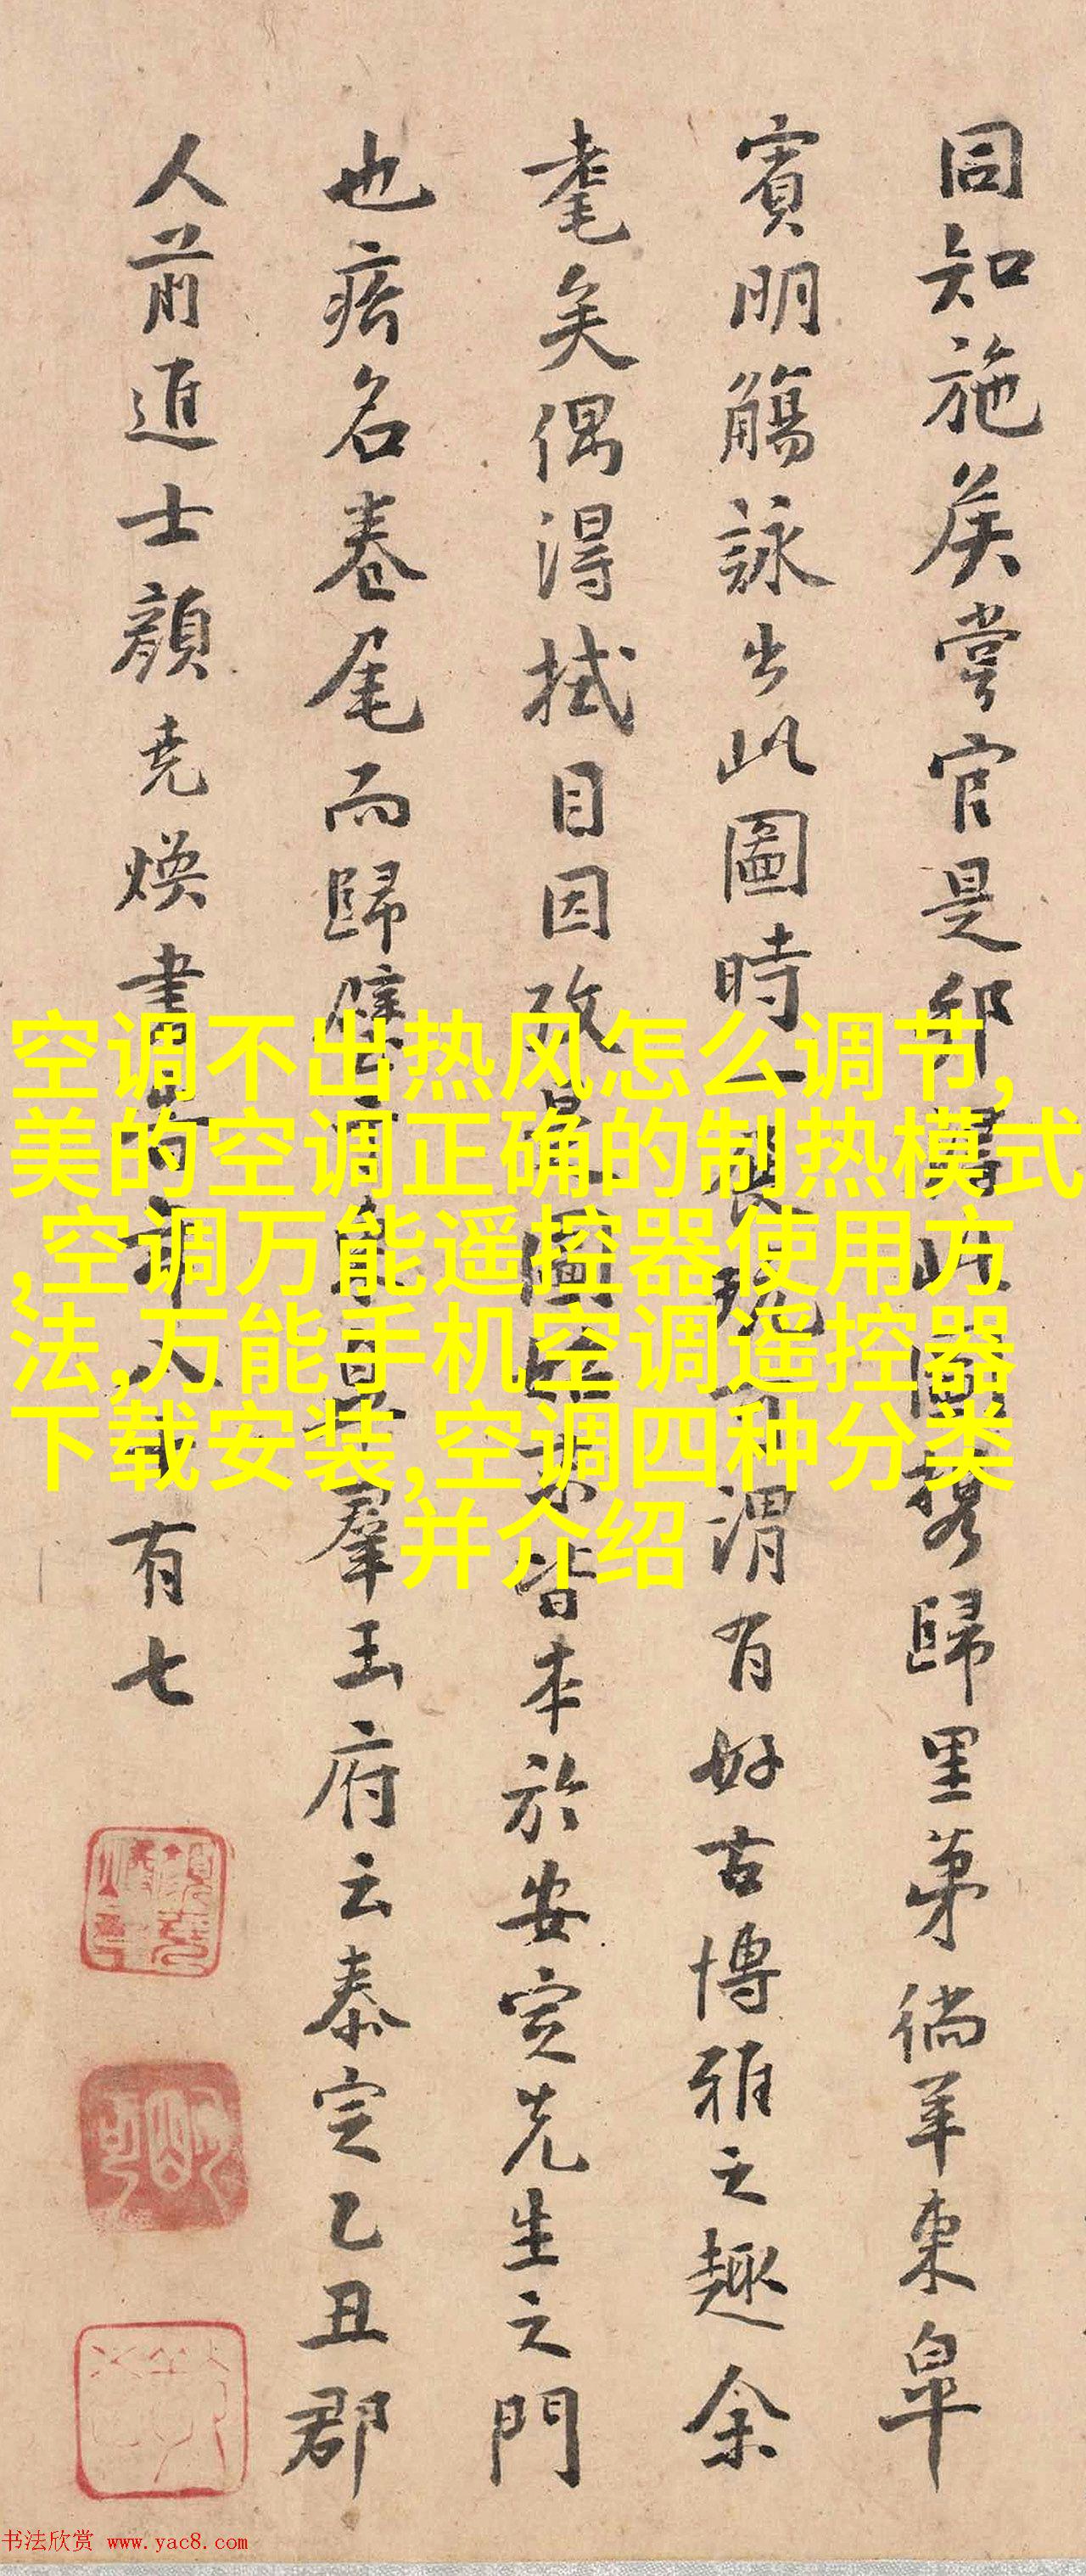 同知施侯嘗官是邦
圖携歸里第徜羊東皐
賓明觴詠出此圖時一
謂有好古博雅之趣余
耄矣偶得拭目因改
皆本於安定先生之門
也瘖名卷尾而歸
羣玉府云泰定乙丑郡
人前進士顏堯煥書
有七
空调不出热风怎么调节,
美的空调正确的制热模式
,空调万能遥控器使用方
法,万能手机空调遥控器
下载安装,空调四种分类
并介绍
书法欣赏 www.yac8.com